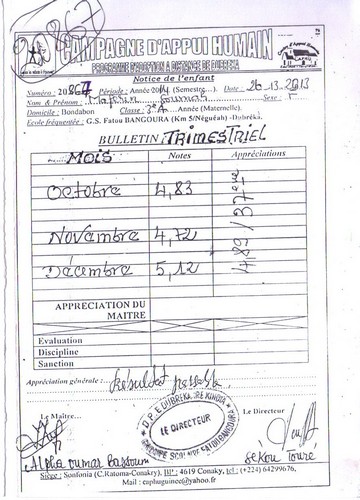 20867
CAMPAGNE D'APPUI HUMAIN
PROGRAMME D'ADOPTION A DISTANCE DE DUBREKA
Notice de l'enfant
Numéro : 20867 Période : Année 2014 (Semestre...). Date : 26-13-2013
Nom & Prénom : Sexe : F
Domicile : Bondabon Classe : 3e A ....Année (Maternelle).
Ecole fréquentée : G.S. Fatou BANGOURA (Km 5/Néguéah) -Dubréka.
BULLETIN TRIMESTRIEL
MOIS Notes Appréciations
Octobre 4,83
Novembre 4,72
Décembre 5,12
4,89 / 37eme
APPRECIATION DU MAITRE
Evaluation
Discipline
Sanction
Appréciation générale : Résultat passable
Le Maître... Le Directeur
D.P.E DUBREKA
LE DIRECTEUR
Alpha oumar Bassoum Sékou Touré
Siège : Sonfonia (C.Ratoma-Conakry), BP : 4619 Conaky, tel : (+224) 64299676,
Mail : cuphuguinee@yahoo.fr